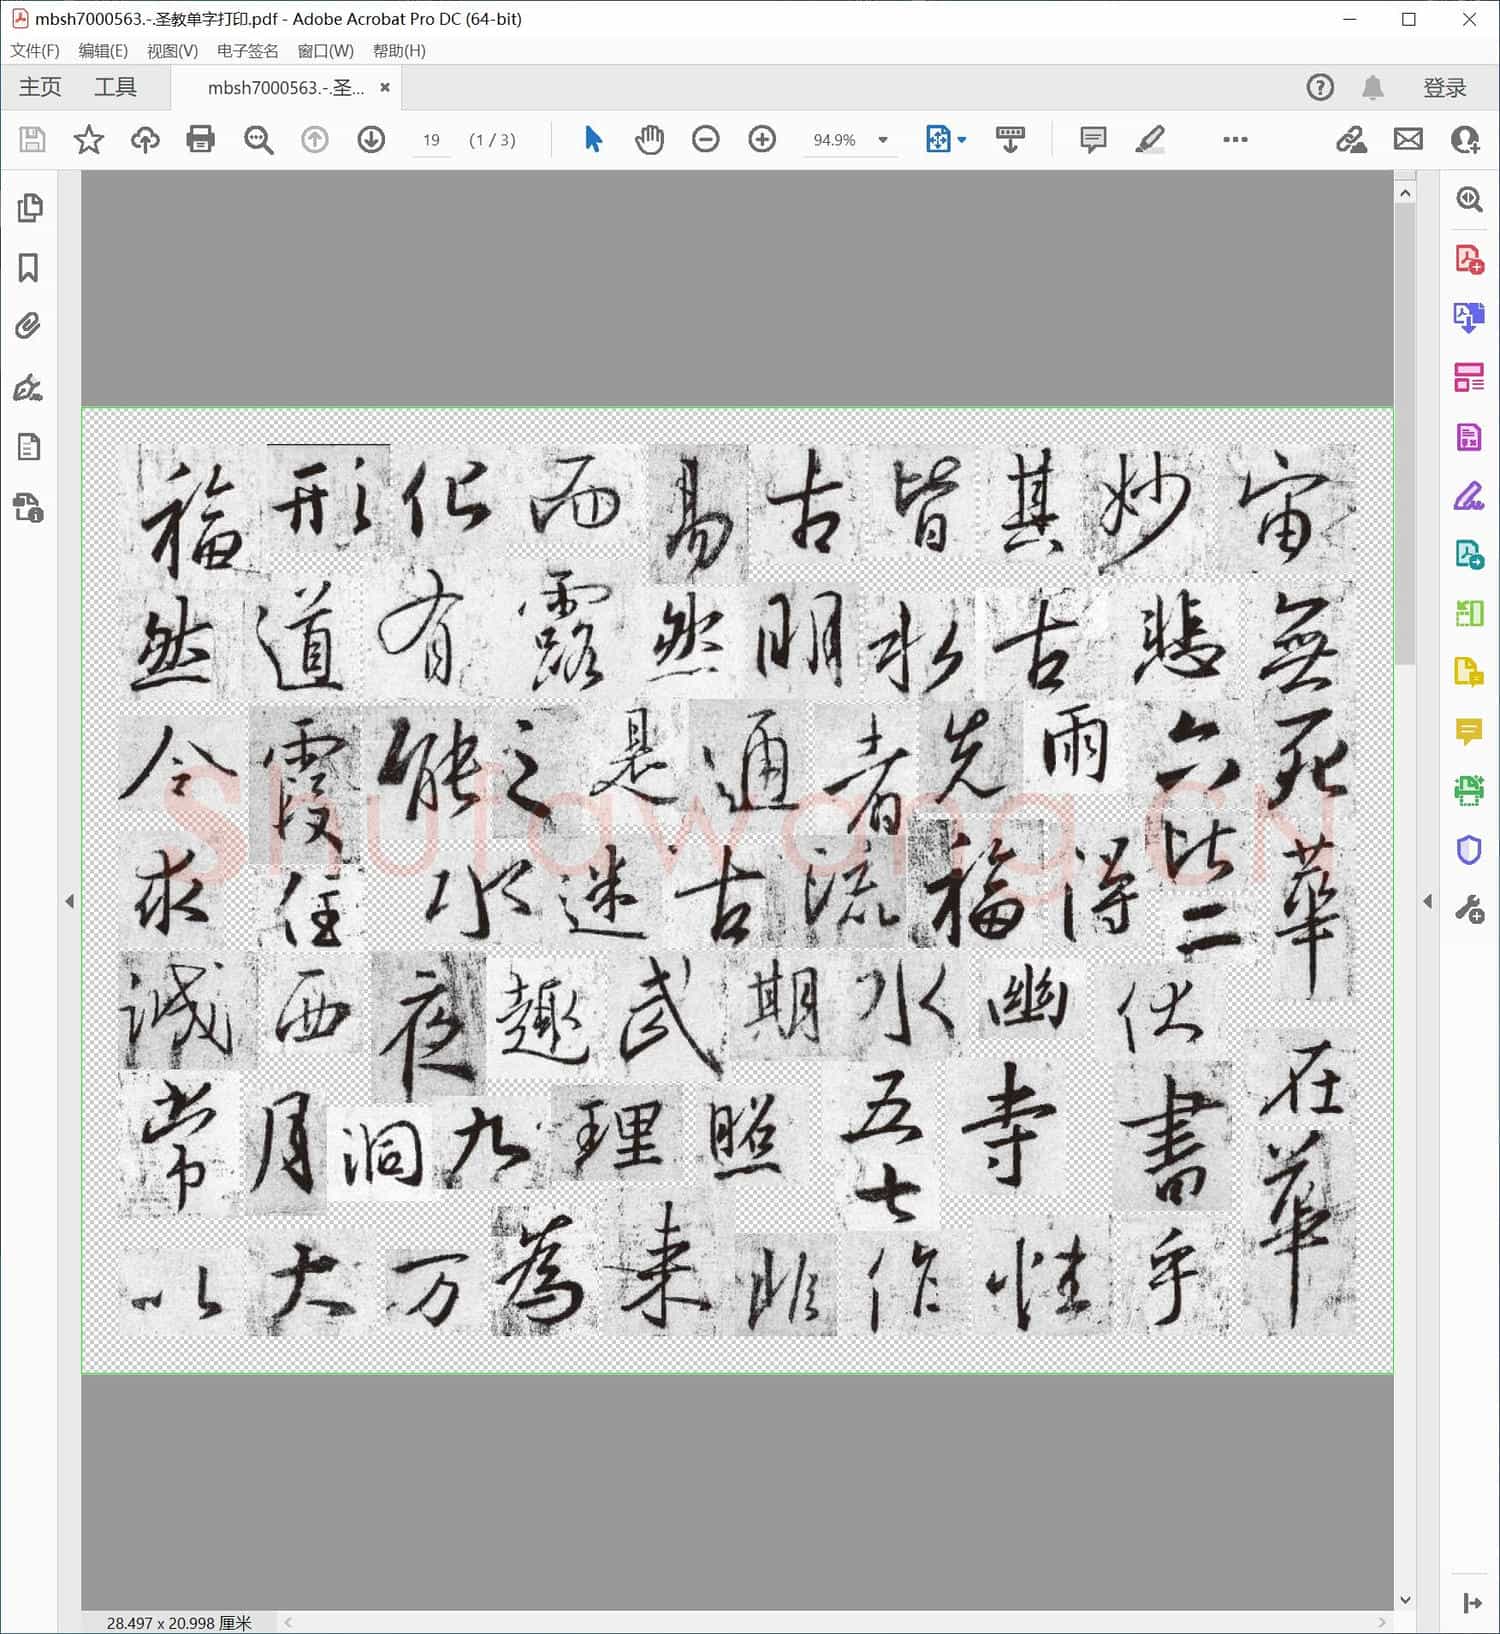 mbsh7000563.-.圣教单字打印.pdf - Adobe Acrobat Pro DC (64-bit)
文件(F) 编辑(E) 视图(V) 电子签名 窗口(W) 帮助(H)
主页 工具 mbsh7000563.-.圣... 登录
19 (1 / 3) 94.9%
宙妙其皆古易而化形福
無悲古水明然露有道然
死六雨先者通是之能霞令
華比二得福流古迷水任求
伏幽水期武趣夜西誠
在書寺五照理九洞月常
華乎性作七非来為万大以
Shufawang.CN
28.497 x 20.998 厘米